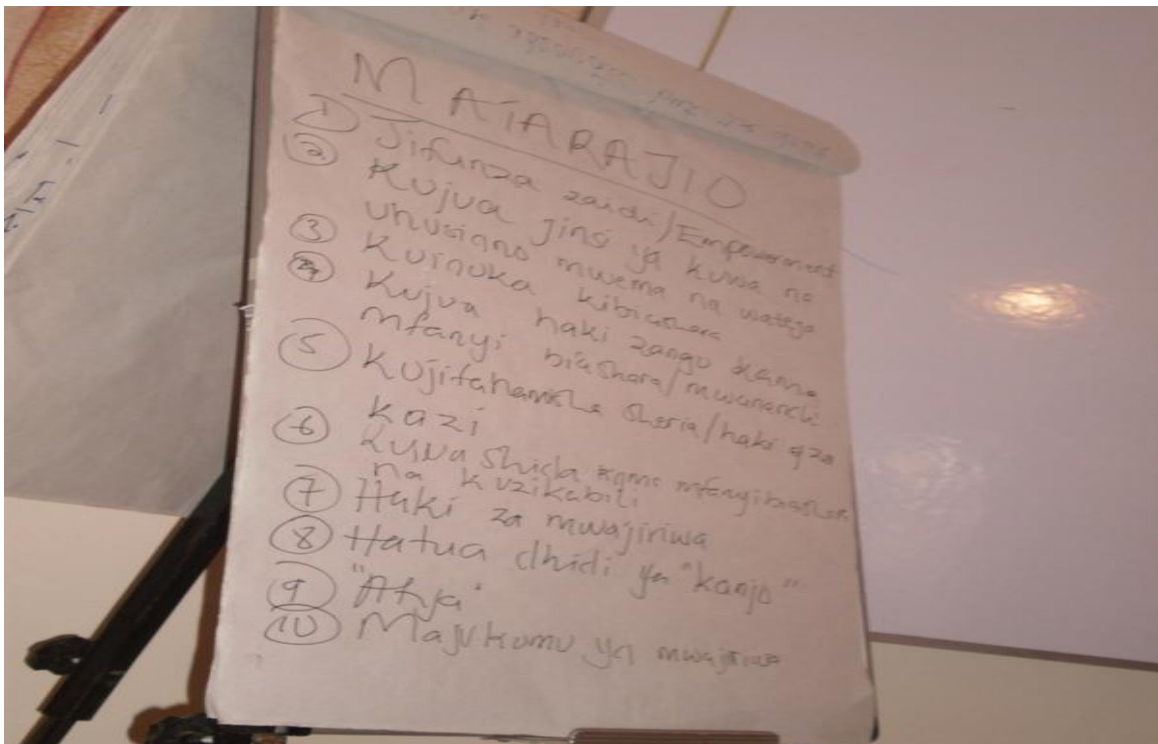 MATARAJIO
① Jifunza zaidi/Empowerment
② Kujua jinsi ya kuwa na
uhusiano mwema na wateja
③ Kuinuka kibiashara
④ Kujua haki zangu kama
mfanyi biashara/mwananchi
⑤ Kujifahamisha sheria/haki za
kazi
⑥ Kujua shida kama mfanyibiashara
na kuzikabili
⑦ Haki za mwajiriwa
⑧ Hatua dhidi ya "kanjo"
⑨ "Afya"
⑩ Majukumu ya mwajiriwa